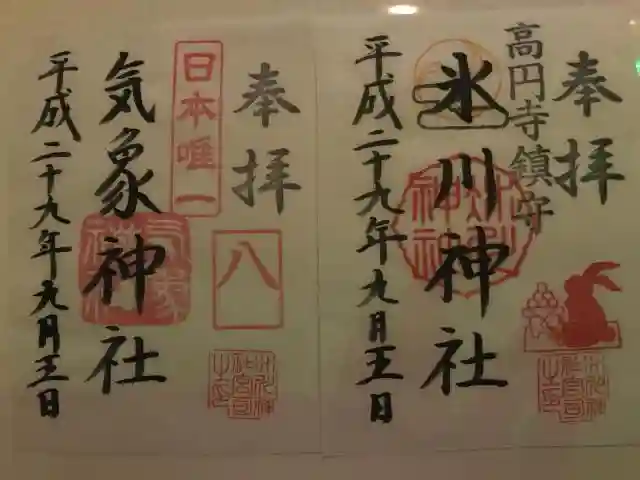 奉拝
高円寺鎮守
氷川神社
平成二十九年九月五日
奉拝
日本唯一
八
気象神社
平成二十九年九月五日